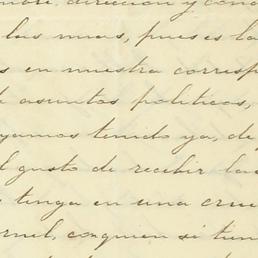 dirección y
las mias, pues es la
s en nuestra corresp
e asuntos politicos,
yamos tenido ya, de
l gusto de recibir las
tenga en una crue
rnel, conquien si tien